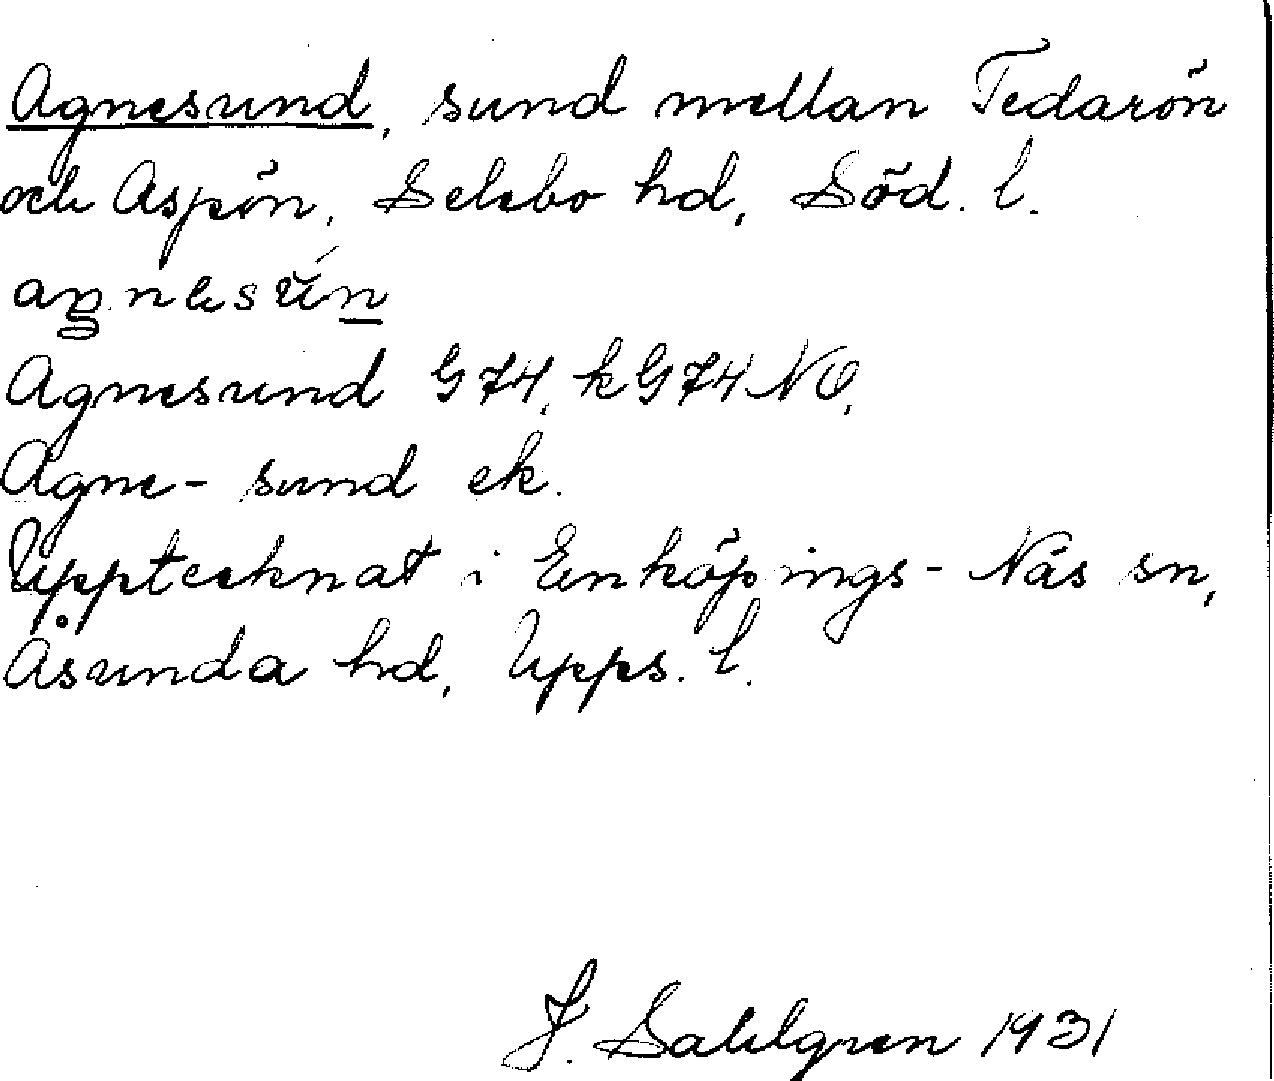 Agnesund, sund mellan Tedarön
och Aspön, Selebo hd, Söd. l.
Agnesund G74, kG74 NO,
Agne- sund ek.
Upptecknat i Enköpings-Näs sn,
Åsunda hd, Upps. l.
J. Sahlgren 1931